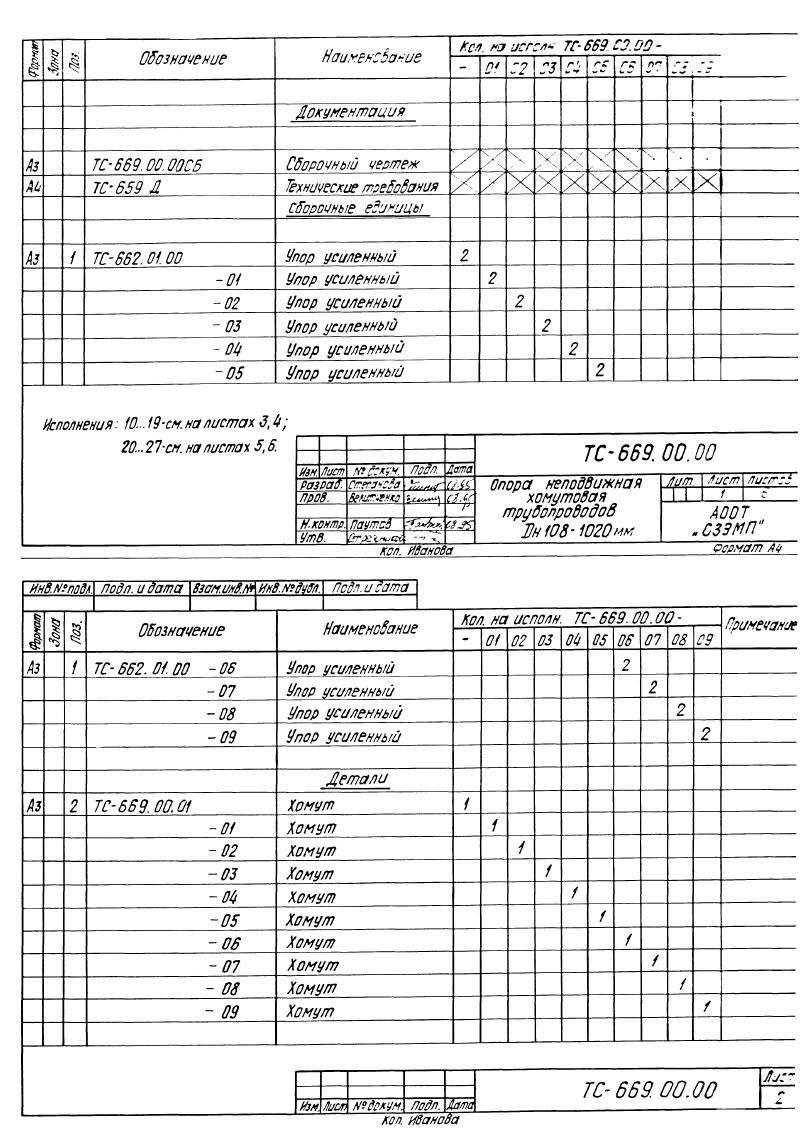 Формат Зона Поз. Обозначение Наименование Кол. на исполн. ТС-669.00.00-
- 01 02 03 04 05 06 07 08 09
Документация
А3 ТС-669.00.00СБ Сборочный чертеж
А4 ТС-659 Д Технические требования
Сборочные единицы
А3 1 ТС-662.01.00 Упор усиленный 2
-01 Упор усиленный 2
-02 Упор усиленный 2
-03 Упор усиленный 2
-04 Упор усиленный 2
-05 Упор усиленный 2
Исполнения: 10...19-см. на листах 3,4;
20...27-см. на листах 5,6.
ТС-669.00.00
Изм. Лист № докум. Подп. Дата
Разраб. Степанова
Пров.
Н.контр. Паутов
Утв.
Опора неподвижная
хомутовая
трубопроводов
Dн 108-1020 мм
Лит. Лист Листов
1
АООТ
„СЗЭМП"
Кол. Иванова Формат А4
Инв.№ подл. Подп. и дата Взам.инв.№ Инв.№ дубл. Подп. и дата
Формат Зона Поз. Обозначение Наименование Кол. на исполн. ТС-669.00.00- Примечание
- 01 02 03 04 05 06 07 08 09
А3 1 ТС-662.01.00 -06 Упор усиленный 2
-07 Упор усиленный 2
-08 Упор усиленный 2
-09 Упор усиленный 2
Детали
А3 2 ТС-669.00.01 Хомут 1
-01 Хомут 1
-02 Хомут 1
-03 Хомут 1
-04 Хомут 1
-05 Хомут 1
-06 Хомут 1
-07 Хомут 1
-08 Хомут 1
-09 Хомут 1
ТС-669.00.00
Лист
2
Изм. Лист № докум. Подп. Дата
Кол. Иванова